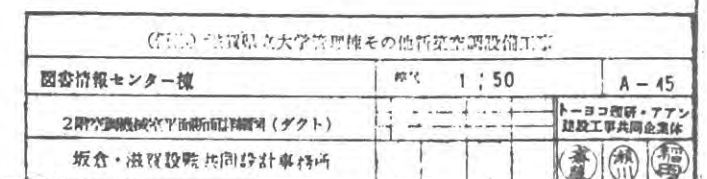 滋賀県立大学管理棟その他新築空調設備工事
図書情報センター棟 縮尺 1:50 A-45
2階空調機械室平面断面詳細図(ダクト)
トーヨコ理研・アアン
建設工事共同企業体
坂倉・滋賀設監共同設計事務所
瀬川 稲田